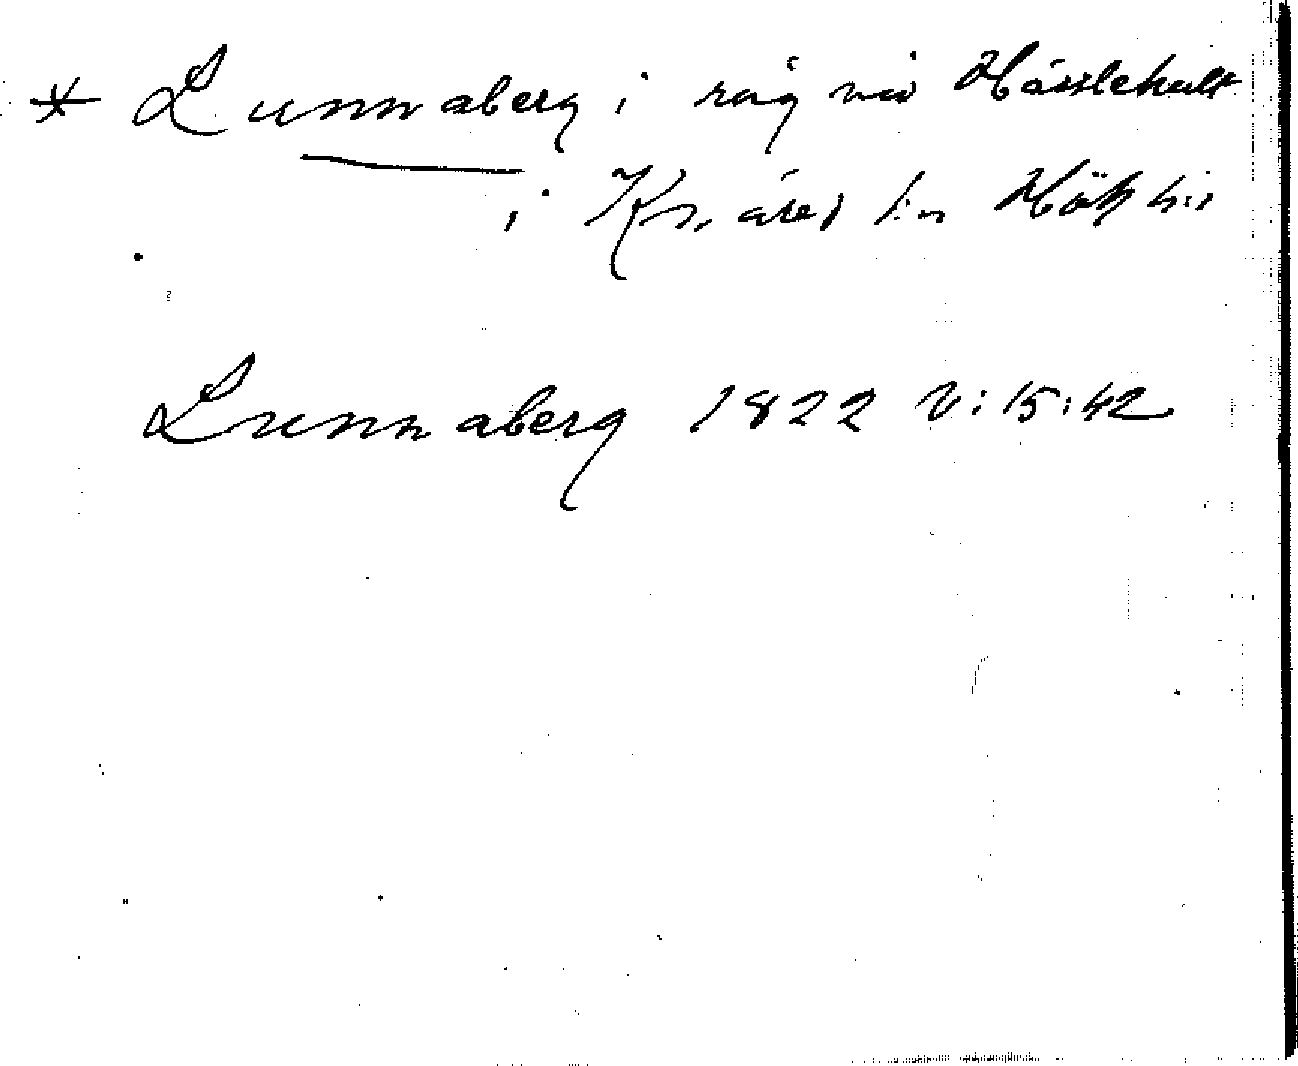 * Lunnaberg i råg vid Hässlehult
i Knäred sn Höks hd
Lunnaberg 1822 V:15:42